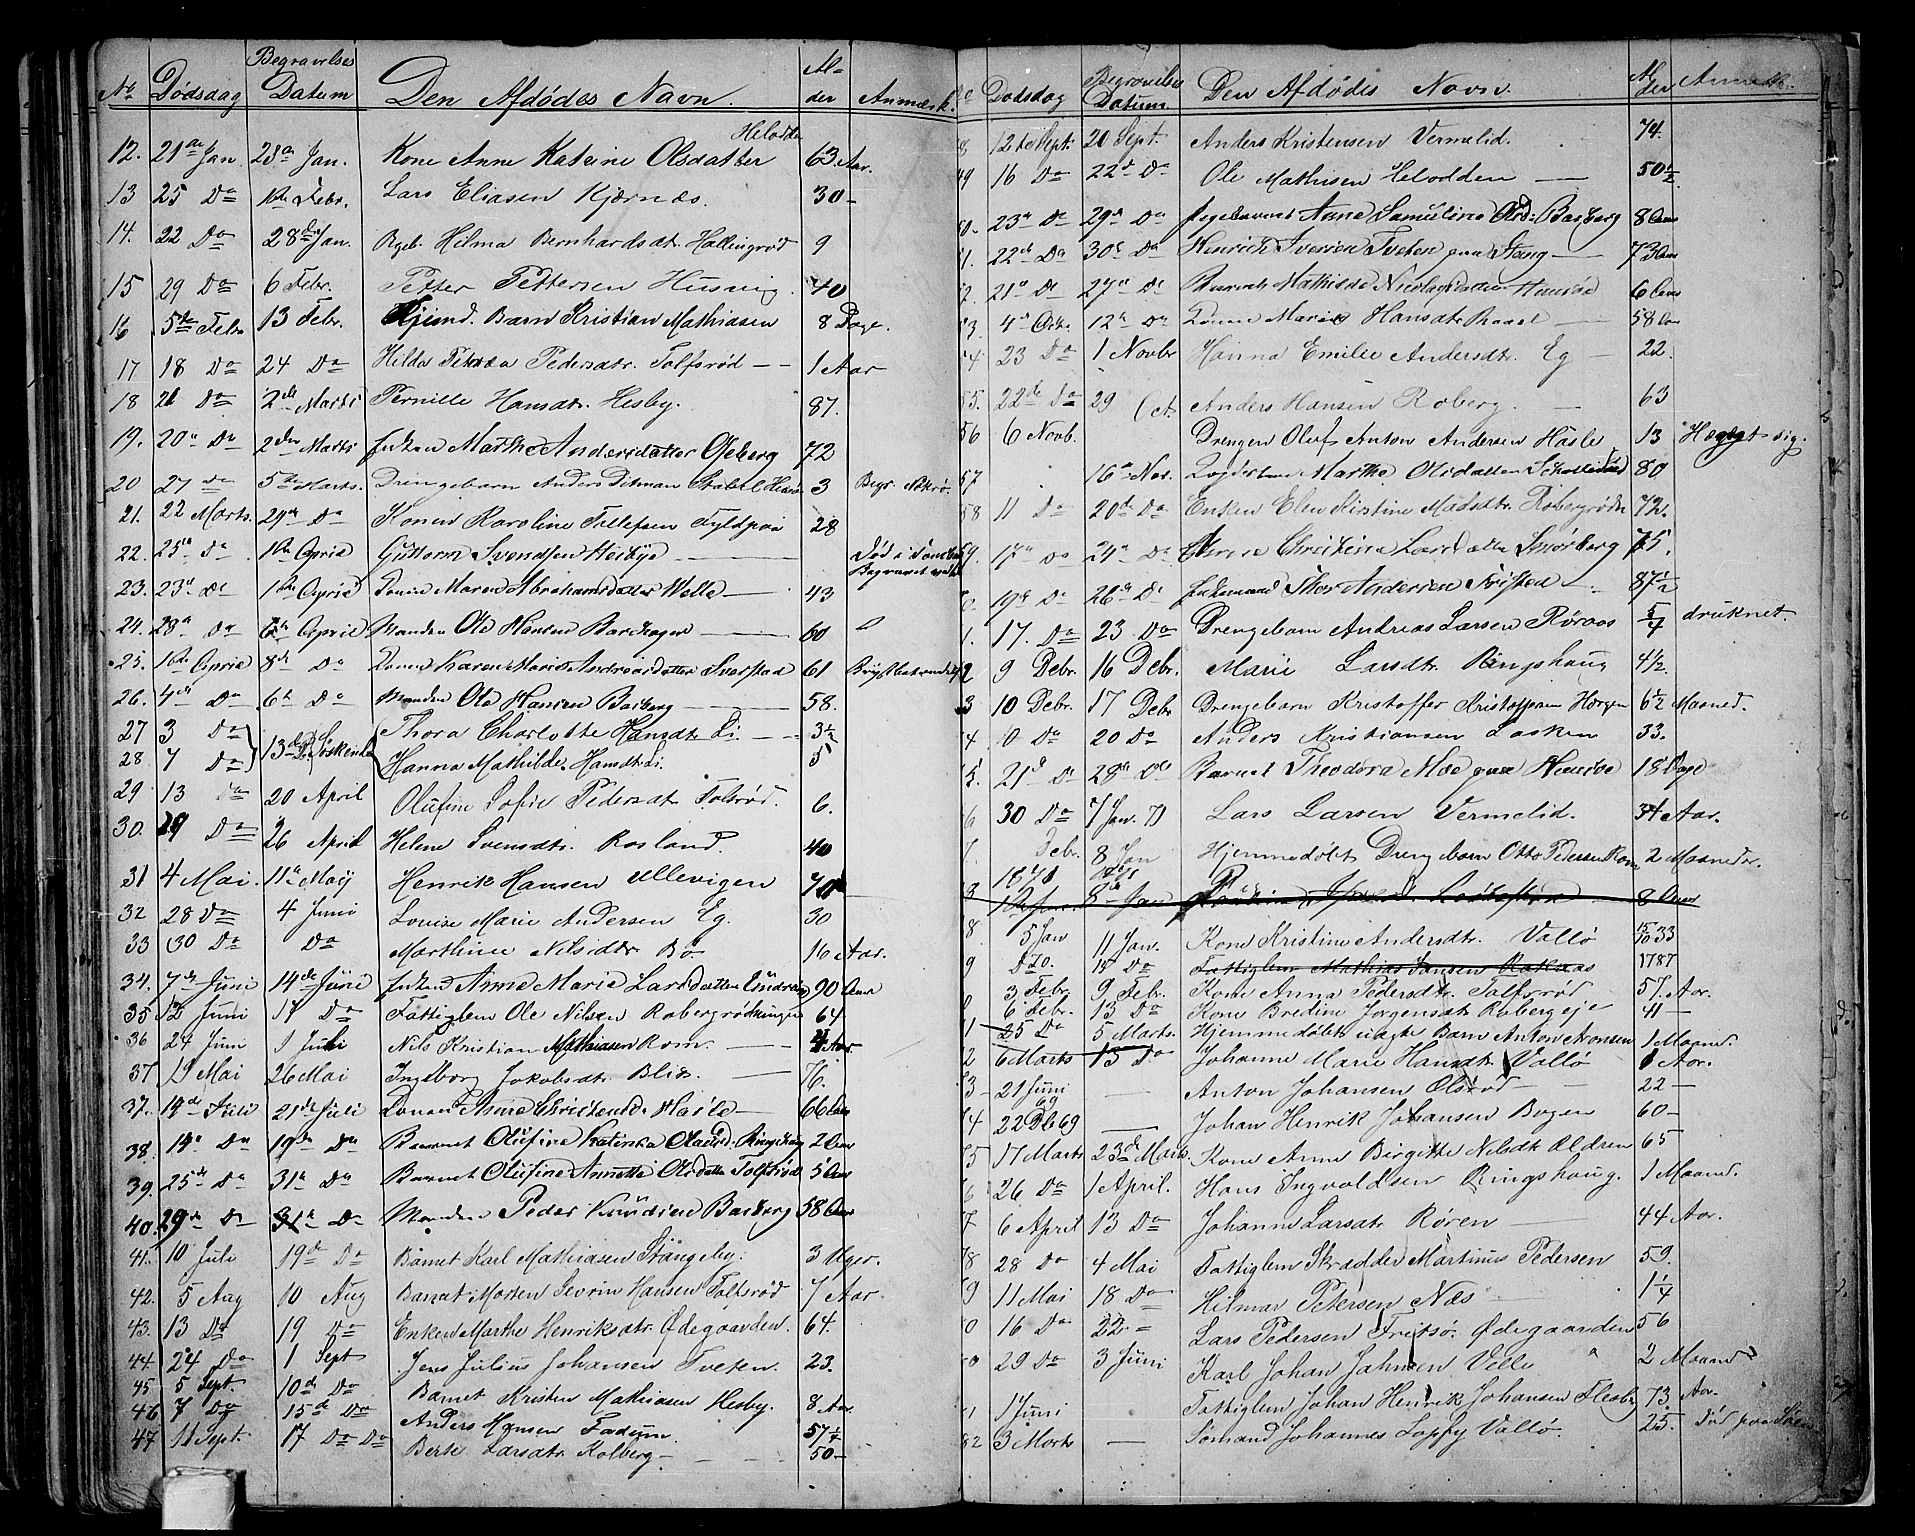 No Dødsdag Begravelses Datum Den Afdødes Navn. Alder Anmærk.
12. 21de Jan 28de Jan. Kone Anne Katrine Olsdatter Helodden 63 Aar.
13 25 Do 1ste Febr. Lars Eliasen Kjærnæs. 30 -
14. 22 Do 28de Jan. Pgeb. Hilma Bernhardsdt. Hallingrød 9
15 29 Do 6 Febr. Petter Pettersen Husvig. 40
16 5te Febr 13 Febr. Hjemd. Barn Kristian Mathiasen 8 Dage.
17 18 Do 24 Do Hilda Pedersdtr. Tolfsrød - - 1 Aar
18 21 Do 2de Marts Pernille Hansdtr. Hesby. 87.
19. 20de Do 2den Marts Enken Marthe Andersdatter Ofeberg 72
20 27 Do 5te Marts. Drengebarn Anders Ditman 3 Begr.
21. 22 Marts. 29de Do Konen Karoline Tellefsen Fyldpaa 28
22. 25de Do 1ste April Guttorm Svendsen Høibye. Død i Tønsberg Begravet
23. 23de Do 1ste April Konen Maren Abrahamsdatter Welle - 43
24. 28de Do April Manden Ole Hansen Barkager - 60
25. 1ste April 8de Do Konen Karen Marie Andreasdatter Sverstad 61
26. 4de Do 6te Do Manden Ole Hansen Basberg - 58.
27 3 Do Thora Charlotte Hansdtr Li. - - 3½
13de Do Søskende
28 7 Do Hanna Mathilde Hansdtr Li. 5
29 13 Do 20 April Olufine Sofie Pedersdtr Tolsrød. 6.
30. 19 Do 26 April Helene Svensdtr. Rosland. 40
31 4 Mai. 11te May Henrik Hansen Ullevigen 70
32 28 Do 4 Juni Lovise Marie Andersen Eg. 30
33 30 Do Do Marthine Nilsdtr Bø 16 Aar.
34. 7de Juni 14de Juni Enken Anne Marie Larsdatter 90 Aar
35 12 Juni 17 Do Fattiglem Ole Nilsen Robergrødningen 64.
36 24 Juni 1 Juli Nils Kristian Mathiasen Rom. 4 Aar.
37 19 Mai 26 Mai Ingeborg Jakobsdt. Blix. 76.
37. 14de Juli 21de Juli Konen Anne Christensd. Hasle - 66 Aar
38. 14de Do 19de Do Barnet Olufine Katinka Olausd. Ringshaug 2 Aar
39. 25de Do 31te Do Barnet Olufine Annette Olsdatter Tolfsrød 5 Aar
40. 29de Do 31te Do Manden Peder Knudsen Basberg 58 Aar
41. 10 Juli 19de Do Barnet Karl Mathiasen Stangeby. 3 Uger.
42. 5 Aug 10 Aug Barnet Morten Severin Hansen Tolfsrød 7 Aar
43. 13 Do 19 Do Enken Marthe Henriksdtr. Ødegaarden. 64.
44. 24 Do 1 Sept Jens Julius Johansen Tveten. 23.
45 5 Sept. 10de Do Barnet Kristen Mathiasen Hesby. 8 Aar
46 7 Do 15de Do Anders Hansen Fadum. 57½
47 11 Sept. 17 Do Do Berte Larsdtr. Rolberg - 50 -
Dødsdag Begravelses Datum Den Afdødes Navn. Alder Anmærk.
8 12te Sept. 20 Sept. Anders Kristensen Vermelid. 74.
49 16 Do 22de Do Ole Mathisen Helodden - 50½
50. 23de Do 29de Do Pigebarnet Anne Samuline Olsd: Basberg 8 Aar
51. 22de Do 30te Do Henrich Iversen Tveten paa Stang - 73 Aar
52. 21de Do 27de Do Barnet Mathilde Nicolaysdatter Husøe 6 Aar
53. 4de Okt. 12te Do Konen Marie Hansdtr. - 58 Aar
54 23 Do 1 Novbr Hanna Emilie Andersdtr. Eg - 22.
55. 22de Do 29 Oct. Anders Hansen Roberg. - 63
56 6 Novb. Drengen Oluf Anton Andersen Hasle 13 Hægt sig.
57 16de Nov. Marthe Olsdatter 80
58 11 Do 20de Do Enken Elen Kirstine Madsdtr. Robergrødn 72.
59. 17de Do 24de Do Christine Larsdatter Smørberg 75.
60. 19de Do 26de Do Enkemand Thor Andersen Fristad - 87½
1. 17. Do 23 Do Drengebarn Andreas Larsen Røraas 5/4 druknet.
2 9 Debr. 16 Debr. Marie Larsdtr. Ringshaug 4½
3 10 Debr. 17 Debr Drengebarn Kristoffer Kristoffersen Horgen 6½ Maaned.
4 10 Do 20 Do Anders Kristiansen Lasken 33.
5. 21de Do 29de Do Barnet Theodora Moe paa Husøe 18 Dage
6 30 Do 7 Jan. 71 Lars Larsen Vermelid. 34 Aar.
7. Debr. 8 Jan Hjemmedøbt Drengebarn Otto Pedersen Rom 2 Maaneder.
1871 1871
8 8de Jan 8 Aar
8. 5 Jan 11 Jan. Kone Kristine Andersdtr. Vallø 15/10 33
9 D 20. 14 Do Fattiglem Mathias Jansen 1787
3 Febr. 9 Febr. Kone Anna Pedersdtr Tolfsrød 57. Aar.
6 Febr. 13 Do Kone Bredine Jørgensdt Robergeje 41 -
1 25 Do 5 Marts. Hjemmedøbt uægte Barn Anton Aronsen 1 Maaned.
2 6 Marts 13 Do Johanne Marie Hansdtr. Vallø 1 Aar.
3 - 21 Juni 69 - Anton Johansen Olsrød - 22 -
4 22 Db 69 - Johan Henrik Johansen Bogen 60 -
5 17 Marts 23de Marts. Kone Anne Birgitte Nilsdt Oldren 65
6 26 Do 1 April. Hans Ingvaldsen Ringshaug. 1 Maaned.
7 6 April 13 Do Johanne Larsdtr Røren - 44 Aar.
78 28 Do 4 Mai Fattiglem Skrædder Martinus Pedersen 59.
9 11 Mai 18 Do Hilmar Petersen Næs - 1¼
0 16 Do 22. = Lars Pedersen Fritsø. Ødegaarden 56
80 29 Do 3 Juni Karl Johan Jahnsen Velle " 2 Maaned
1 1 Juni Fattiglem Johan Henrik Johansen Flesberg 73. Aar.
82 3 Marts - Sømand Johannes Loppy Vallø. 25. Død paa Søen